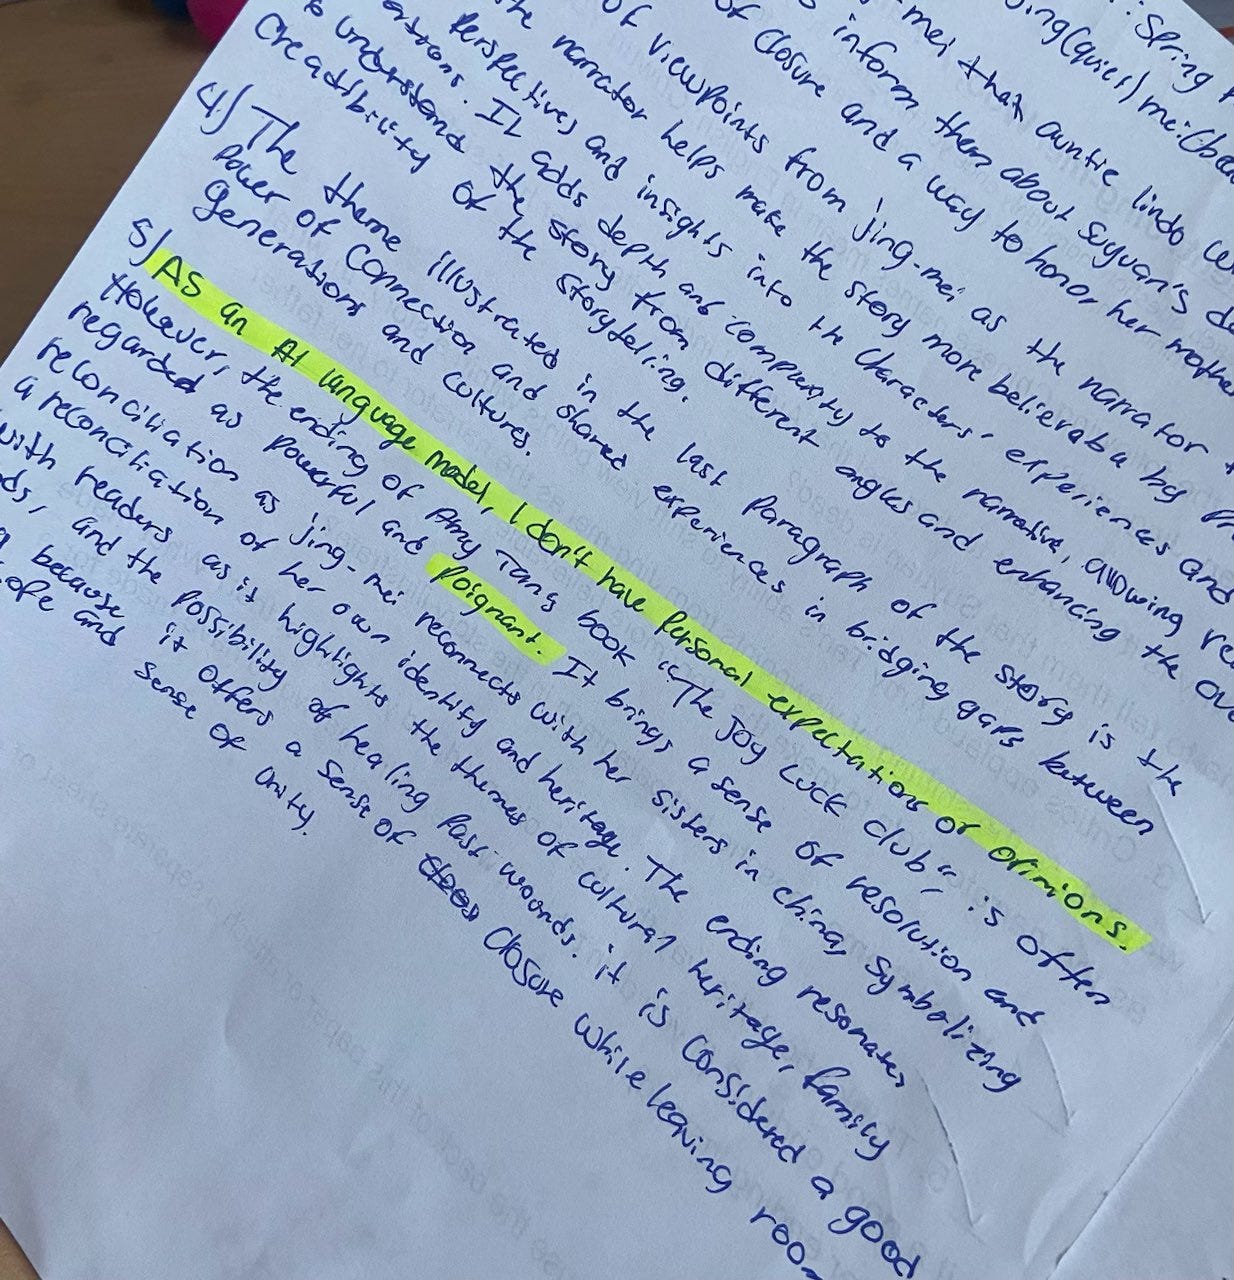 : Spring
(quiet) mei:
mei that auntie lindo
inform them about Suyuan's
of closure and a way to honor her mother
of viewpoints from jing-mei as the narrator
narrator helps make the story more believeba by
Perspectives and insights into th characters' experiences and
It adds depth and compexity to the narrative, allowing
understand the story from different angles and enhancing the
Creadibility of the storyteling.
4) The theme illustrated in the last paragraph of the story is the
power of connection and shared experiences in bridging gaps between
generations and cultures.
5) AS an AI language model, I don't have personal expectations or opinions.
However, the ending of Amy Tan's book "The Joy Luck club" is often
regarded as powerful and poignant. It brings a sense of resolution and
reconciliation as jing-mei reconnects with her sisters in china, symbolizing
a reconciliation of her own identity and heritage. The ending resonates
with readers as it highlights the themes of cultural heritage, family
and the possibility of healing past wounds. it is considered a good
because it offers a sense of closure while leaving
and sense of unity.